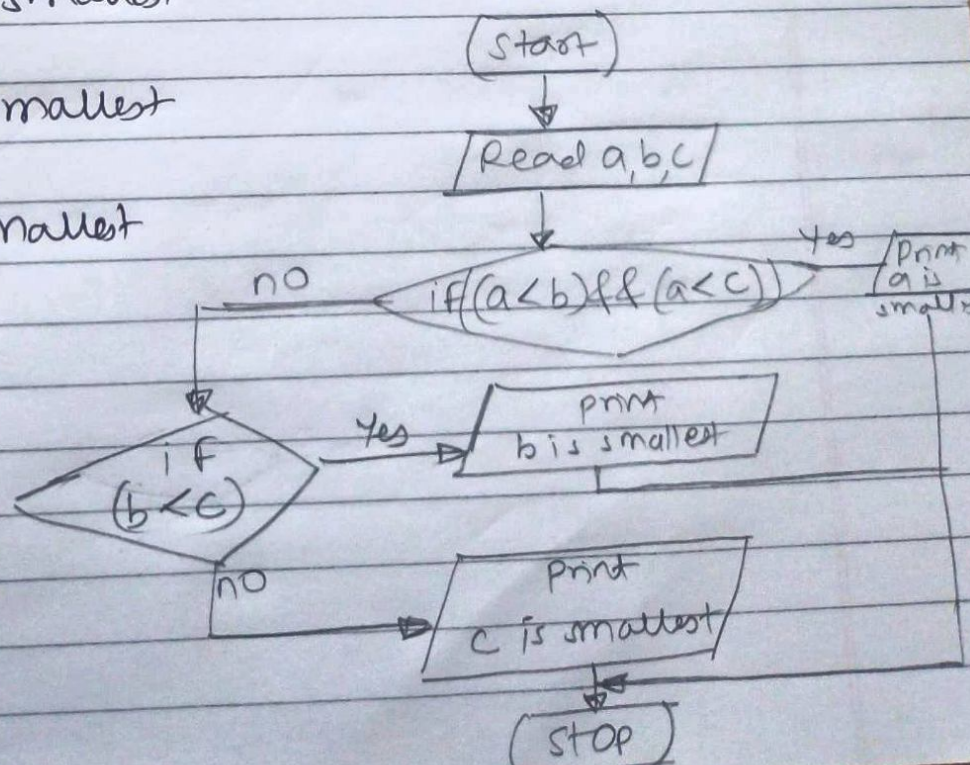 smallest
smallest
smallest
Start
Read a,b,c
if((a<b)&&(a<c))
Yes
print
a is
small
no
if
(b<c)
Yes
print
b is smallest
no
print
c is smallest
STOP